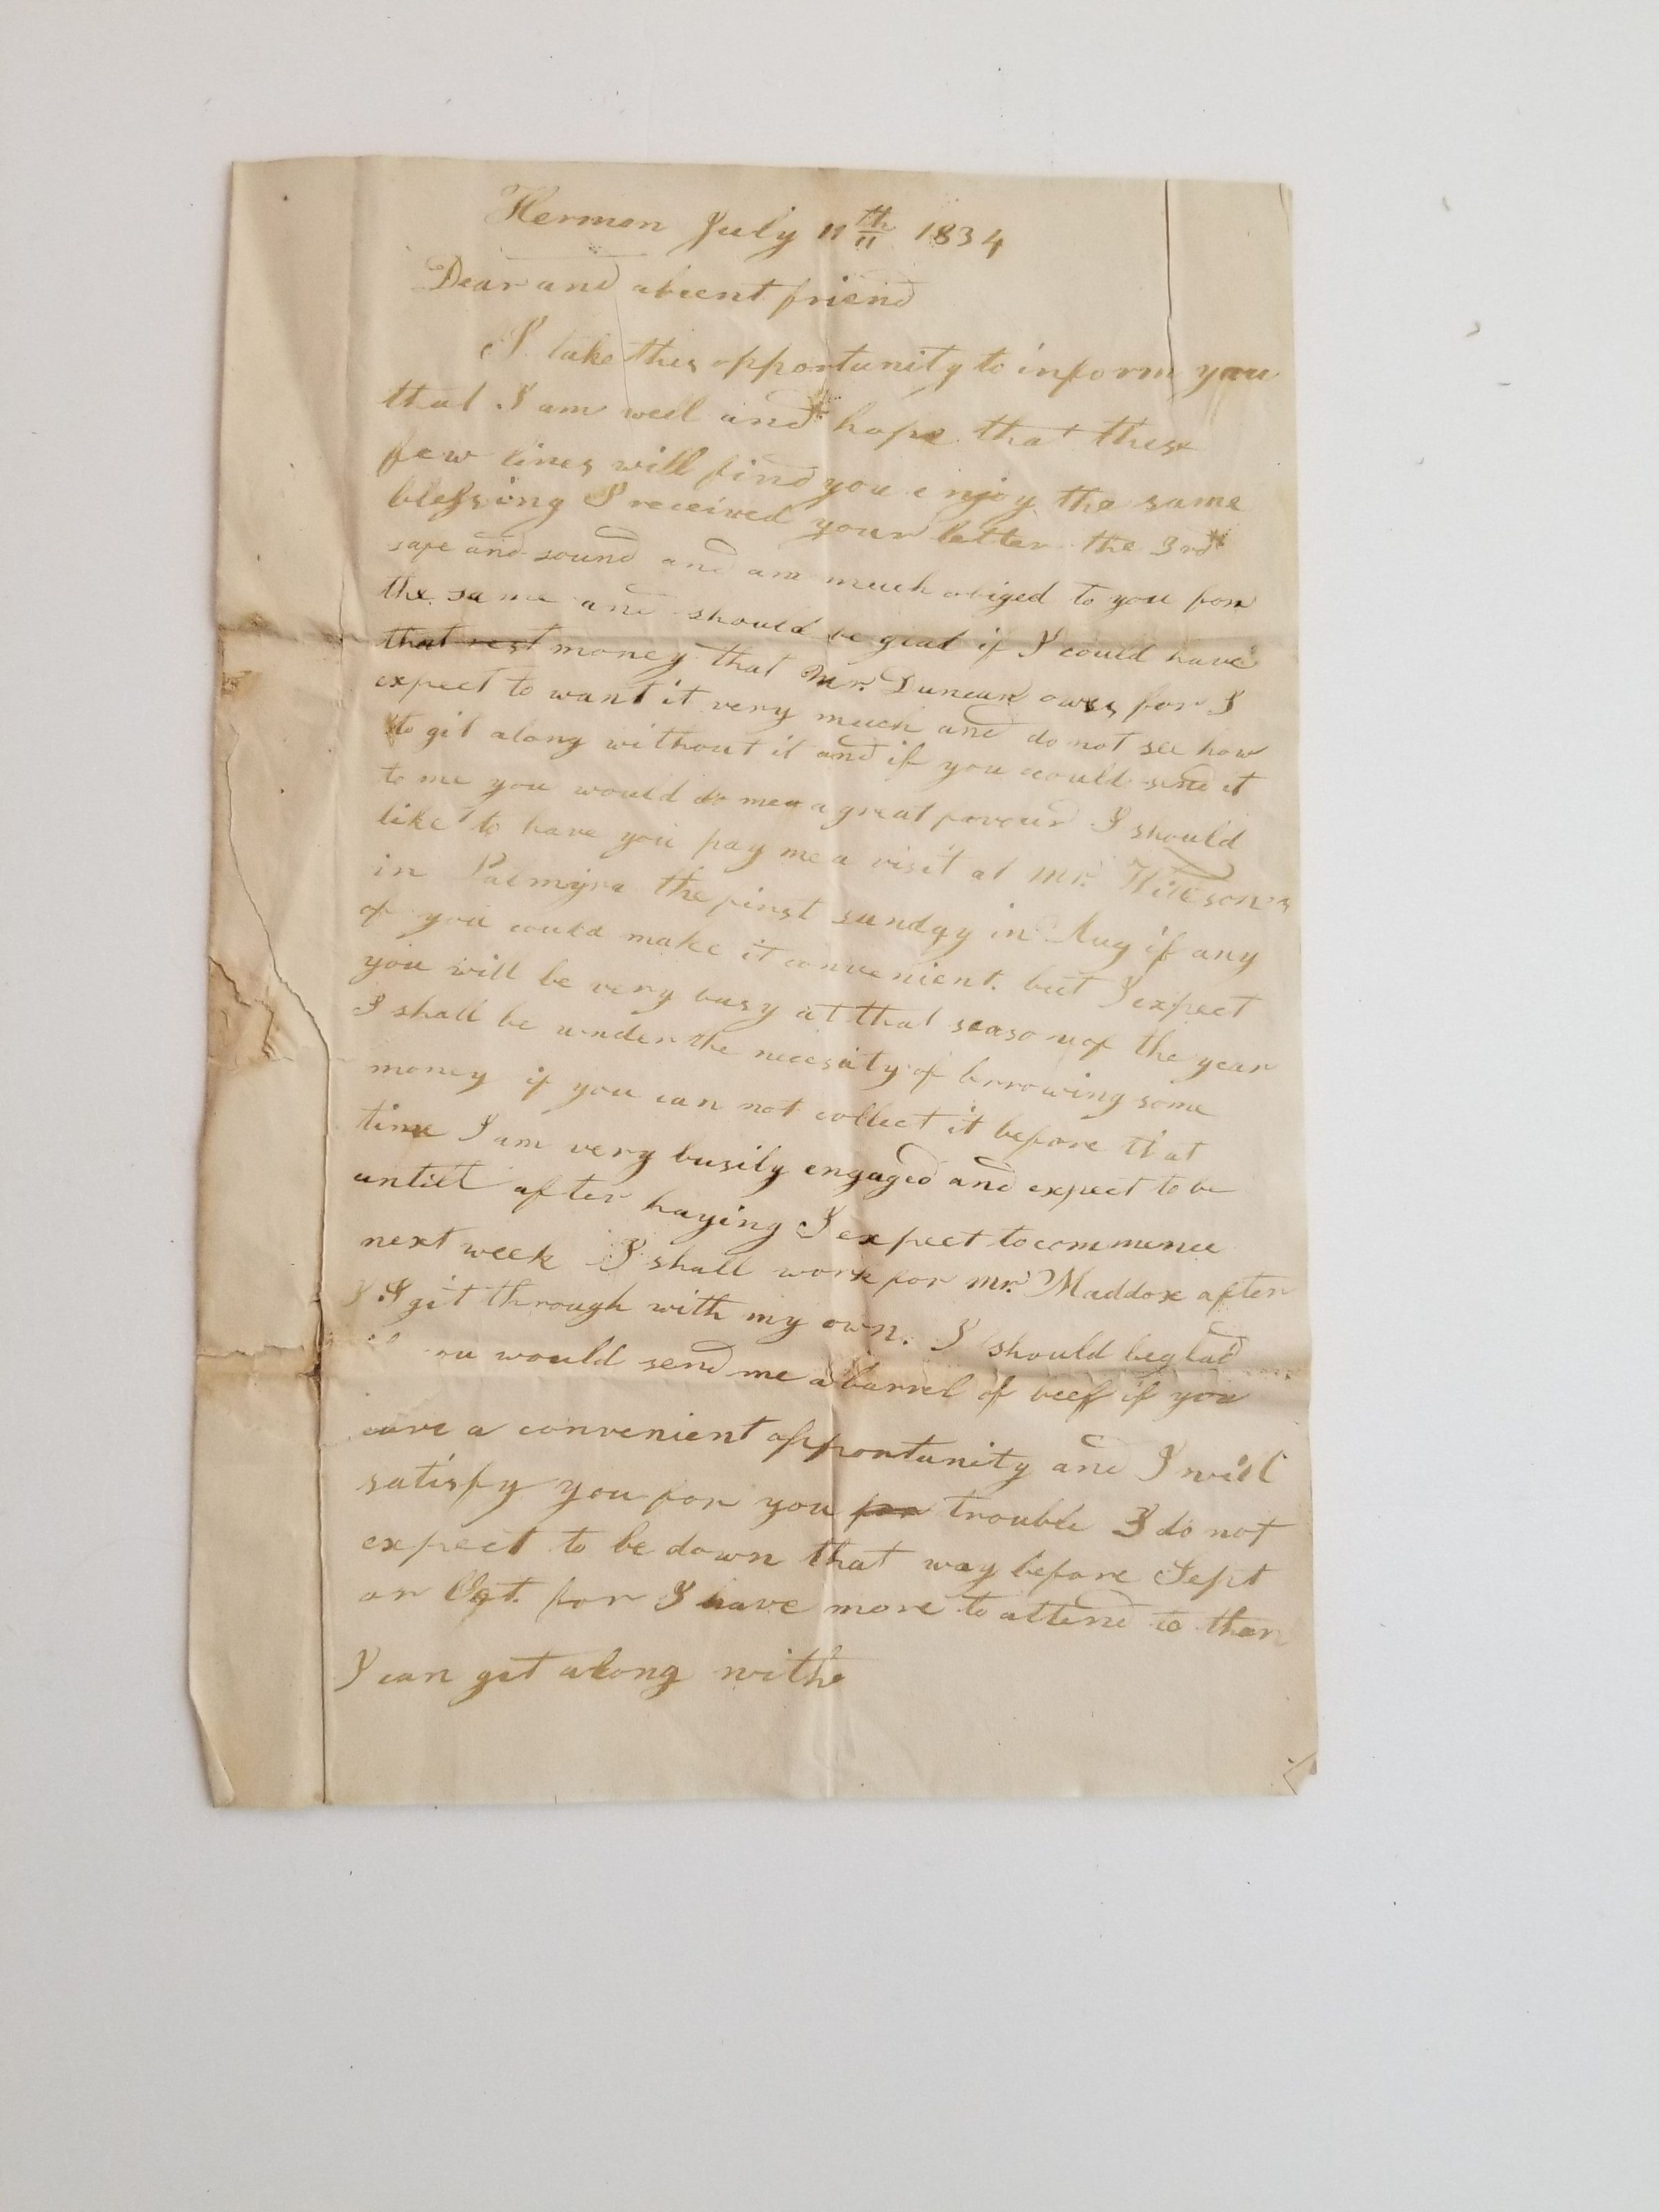 Hermon July 11th 1834
Dear and absent friend
I take this opportunity to inform you
that I am well and hope that these
few lines will find you enjoy the same
blessing I received your letter the 3rd
safe and sound and am much obiged to you for
the same and should be glad if I could have
that rest money that Mr. Duncan owes for I
expect to want it very much and do not see how
to git along without it and if you could send it
to me you would do me a great favour I should
like to have you pay me a visit at Mr.
in Palmyra the first sunday in Aug if any
of you could make it convenient. but I expect
you will be very busy at that season of the year
I shall be under the necesity of borrowing some
money if you can not collect it before that
time I am very busily engaged and expect to be
untill after haying I expect to commence
next week I shall work for Mr. Maddox after
I I git through with my own. I should be glad
ou would send me a barrel of beef if you
ave a convenient opportunity and I will
satisfy you for you for trouble I do not
expect to be down that way before Sept
or Oct. for I have more to attend to than
I can get along withe